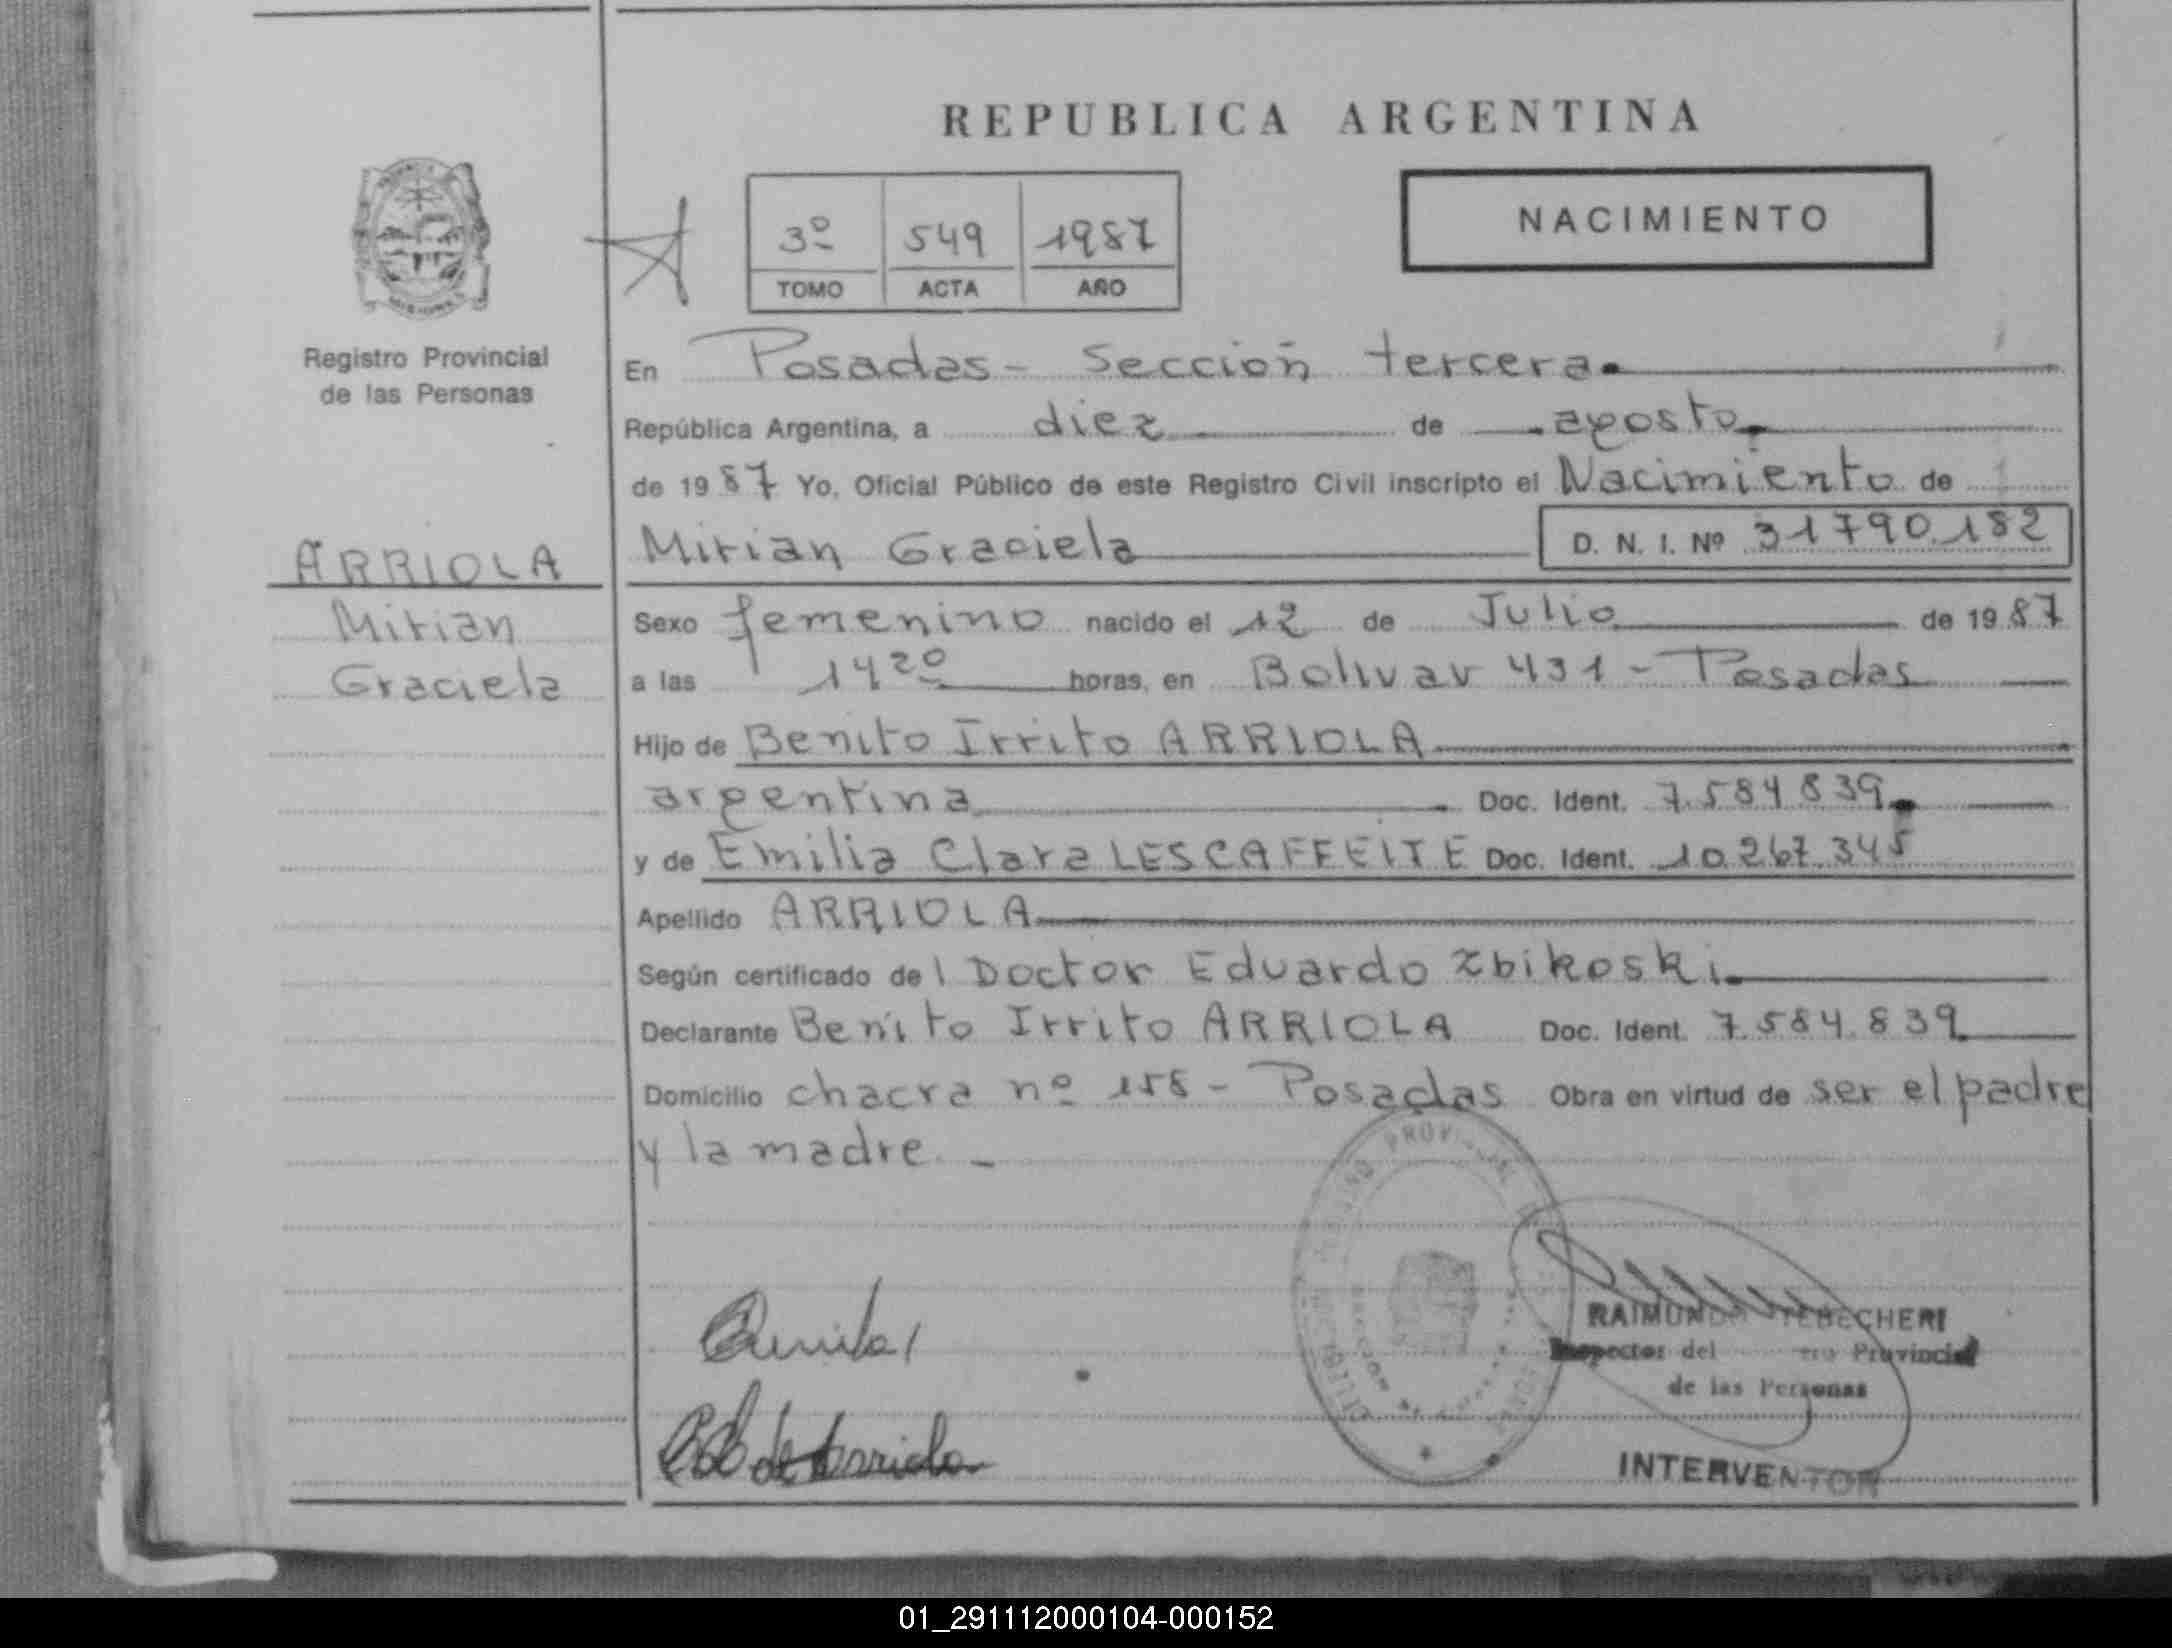 REPUBLICA ARGENTINA
3º 549 1987
TOMO ACTA AÑO
NACIMIENTO
Registro Provincial
de las Personas
En Posadas - Sección tercera.
República Argentina, a diez de agosto.
de 1987 Yo, Oficial Público de este Registro Civil inscripto el Nacimiento de
Mirian Graciela D. N. I. Nº 31790.182
ARRIOLA
Mirian
Graciela
Sexo femenino nacido el 12 de Julio de 1987
a las 14 20 horas, en Bolivar 431 - Posadas
Hijo de Benito Irrito ARRIOLA
argentina. Doc. Ident. 7.584.839.
y de Emilia Clara LESCAFFEITE Doc. Ident. 10.267.345
Apellido ARRIOLA
Según certificado de l Doctor Eduardo Zbikoski.
Declarante Benito Irrito ARRIOLA Doc. Ident. 7.584.839
Domicilio chacra nº 158 - Posadas Obra en virtud de ser el padre
y la madre. -
de Arriola
RAIMUNDO TEBECHERI
Inspector del Provincial
de las Personas
INTERVENTOR
01_291112000104-000152